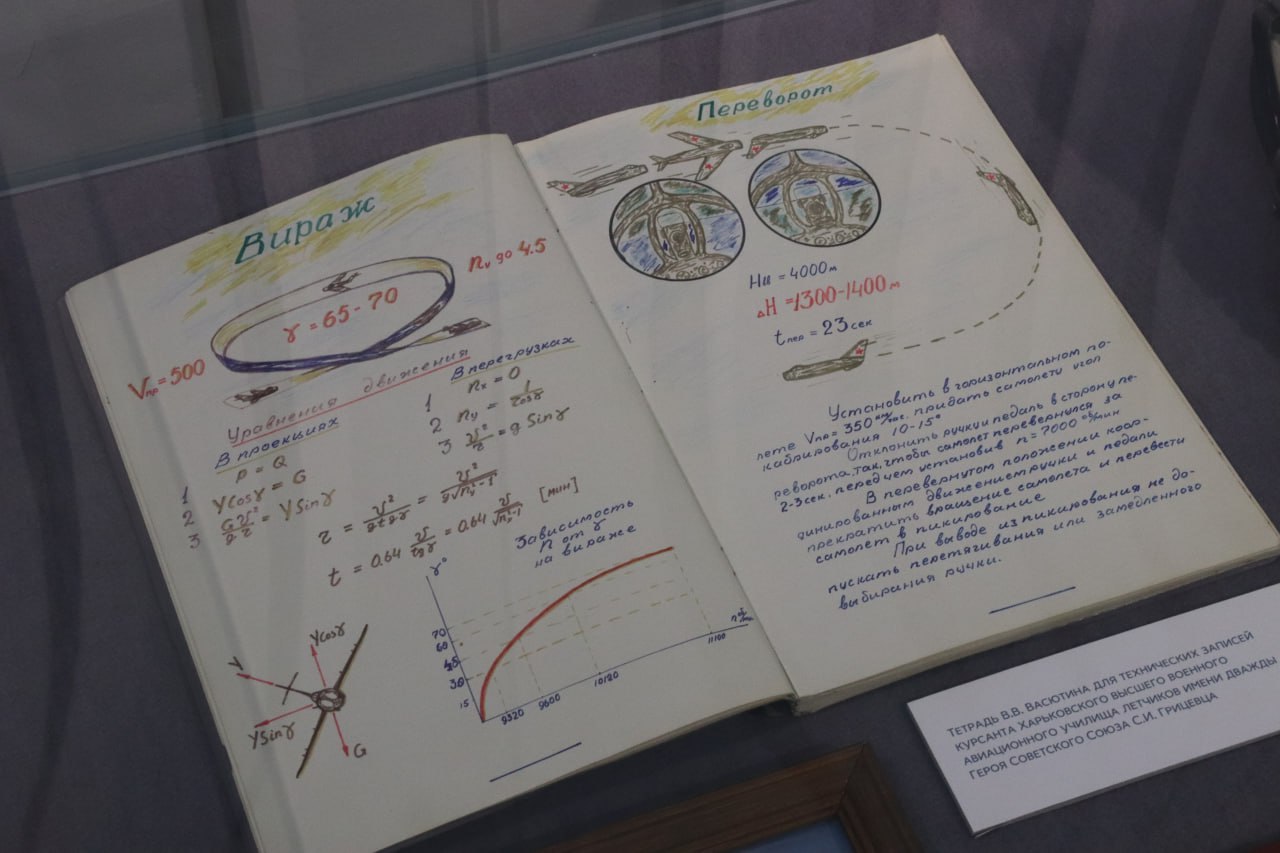 Вираж
n_y до 4.5
γ = 65-70
Vпр = 500
Уравнения движения
В проекциях
1 P = Q
2 Ycosγ = G
3 G/g V²/r = YSinγ
В перегрузках
1 nx = 0
2 ny = 1/cosγ
3 V²/r = g Sinγ
r = V²/(g tg γ) = V²/(g√(ny²-1))
t = 0.64 V/tgγ = 0.64 V/√(ny²-1) [мин]
Зависимость
n от γ
на вираже
γ°
70
60
45
30
15
9320 9600 10120 11100
n об/мин
Y
Ycosγ
YSinγ
G
Переворот
Нн = 4000м
ΔН = 1300-1400м
tпер = 23 сек
Установить в горизонтальном по-
лете Vпр = 350 км/час. придать самолету угол
кабрирования 10-15°
Отклонить ручку и педаль в сторону пе-
реворота, так, чтобы самолет перевернулся за
2-3 сек. перед чем установив n = 7000 об/мин
В перевернутом положении коор-
динированным движением ручки и педали
прекратить вращение самолета и перевести
самолет в пикирование
При выводе из пикирования не до-
пускать перетягивания или замедленного
выбирания ручки.
ТЕТРАДЬ В.В. ВАСЮТИНА ДЛЯ ТЕХНИЧЕСКИХ ЗАПИСЕЙ
КУРСАНТА ХАРЬКОВСКОГО ВЫСШЕГО ВОЕННОГО
АВИАЦИОННОГО УЧИЛИЩА ЛЕТЧИКОВ ИМЕНИ ДВАЖДЫ
ГЕРОЯ СОВЕТСКОГО СОЮЗА С.И. ГРИЦЕВЦА